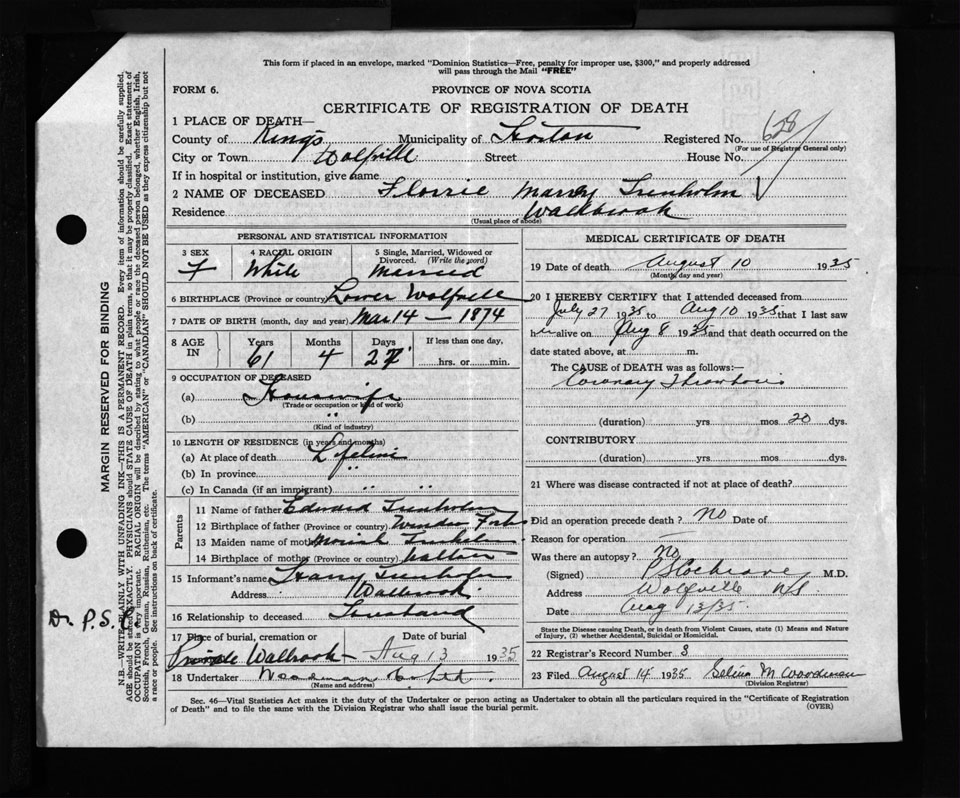 This form if placed in an envelope, marked "Dominion Statistics—Free, penalty for improper use, $300," and properly addressed
will pass through the Mail "FREE"
FORM 6.
PROVINCE OF NOVA SCOTIA
CERTIFICATE OF REGISTRATION OF DEATH
1 PLACE OF DEATH—
County of King's Municipality of Horton Registered No. 628
(For use of Registrar General only)
City or Town Wolfville Street House No.
If in hospital or institution, give name
2 NAME OF DECEASED Florrie Trenholm
Residence Wallbrook
(Usual place of abode)
PERSONAL AND STATISTICAL INFORMATION
3 SEX 4 RACIAL ORIGIN 5 Single, Married, Widowed or Divorced. (Write the word)
F White Married
6 BIRTHPLACE (Province or country) Lower Wolfville
7 DATE OF BIRTH (month, day and year) Mar 14 — 1874
8 AGE IN Years Months Days If less than one day,
61 4 27 hrs. or min.
9 OCCUPATION OF DECEASED
(a) Housewife
(Trade or occupation or kind of work)
(b) "
(Kind of industry)
10 LENGTH OF RESIDENCE (in years and months)
(a) At place of death Lifetime
(b) In province "
(c) In Canada (if an immigrant) " "
Parents
11 Name of father Edward Trenholm
12 Birthplace of father (Province or country) Windsor Forks
13 Maiden name of mother
14 Birthplace of mother (Province or country) Walton
15 Informant's name Harry Trenholm
Address Wallbrook
16 Relationship to deceased Husband
17 Place of burial, cremation or Date of burial
Wallbrook Aug 13 1935
18 Undertaker Woodman
(Name and address)
MEDICAL CERTIFICATE OF DEATH
19 Date of death August 10 1935
(Month, day and year)
20 I HEREBY CERTIFY that I attended deceased from
July 27 1935 to Aug 10 1935 that I last saw
her alive on Aug 8 1935 and that death occurred on the
date stated above, at m.
The CAUSE of DEATH was as follows:—
Coronary Thrombosis
(duration) yrs. mos. 20 dys.
CONTRIBUTORY
(duration) yrs. mos. dys.
21 Where was disease contracted if not at place of death?
Did an operation precede death? No Date of
Reason for operation
Was there an autopsy? No
(Signed) P S Cochrane M.D.
Address Wolfville NS
Date Aug 13/35
State the Disease causing Death, or in death from Violent Causes, state (1) Means and Nature
of Injury, (2) whether Accidental, Suicidal or Homicidal.
22 Registrar's Record Number 8
23 Filed August 14 1935 Selina M Woodman
(Division Registrar)
Sec. 46—Vital Statistics Act makes it the duty of the Undertaker or person acting as Undertaker to obtain all the particulars required in the "Certificate of Registration
of Death" and to file the same with the Division Registrar who shall issue the burial permit.
(OVER)
MARGIN RESERVED FOR BINDING
N.B.—WRITE PLAINLY WITH UNFADING INK—THIS IS A PERMANENT RECORD. Every item of information should be carefully supplied.
AGE should be stated EXACTLY. PHYSICIANS should STATE CAUSE OF DEATH in plain terms, so that it may be properly classified. Exact statement of
OCCUPATION is very important. RACIAL ORIGIN will be described by stating to what people or race the deceased person belonged, whether English, Irish,
Scottish, French, German, Russian, Ruthenian, etc. The terms "AMERICAN" or "CANADIAN" SHOULD NOT BE USED as they express citizenship but not
a race or people. See instructions on back of certificate.
Dr. P.S. C.